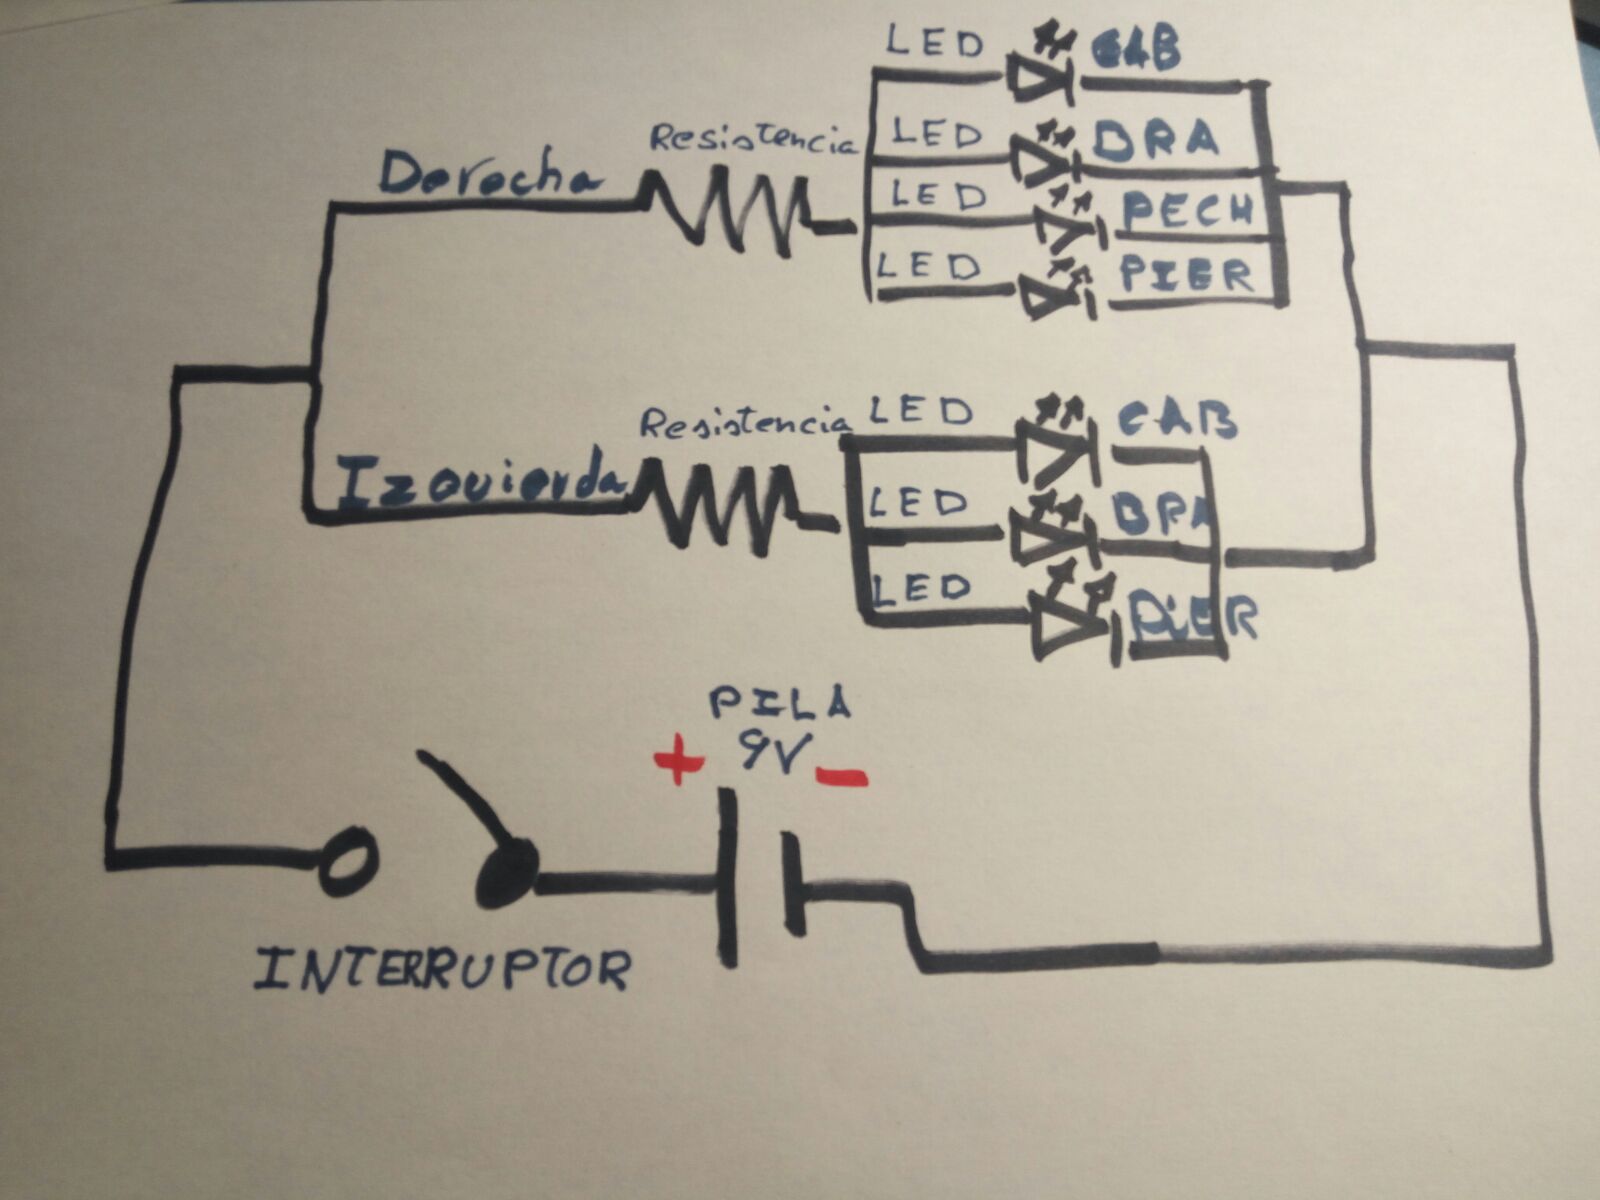 LED CAB
Resistencia LED BRA
Derecha LED PECH
LED PIER
Resistencia LED CAB
Izquierda LED BRA
LED PiER
PILA
+ 9V -
INTERRUPTOR